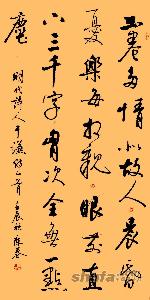 書卷多情似故人晨昏
憂樂每相親眼前直
下三千字胸次全無一點
塵 明代詩人于謙